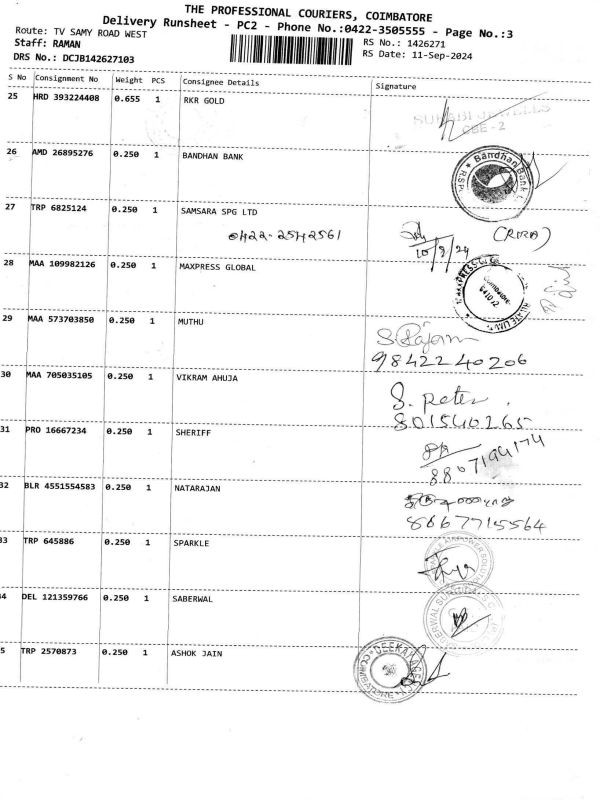 THE PROFESSIONAL COURIERS, COIMBATORE
Delivery Runsheet - PC2 - Phone No.:0422-3505555 - Page No.:3
Route: TV SAMY ROAD WEST
Staff: RAMAN
DRS No.: DCJB142627103
RS No.: 1426271
RS Date: 11-Sep-2024
S No Consignment No Weight PCS Consignee Details Signature
25 HRD 393224408 0.655 1 RKR GOLD
CBE-2
26 AMD 26895276 0.250 1 BANDHAN BANK
Bandhan Bank
27 TRP 6825124 0.250 1 SAMSARA SPG LTD
0422-2542561
28 MAA 109982126 0.250 1 MAXPRESS GLOBAL
29 MAA 573703850 0.250 1 MUTHU
9842240206
30 MAA 705035105 0.250 1 VIKRAM AHUJA
S. Peter
801540265
31 PRO 16667234 0.250 1 SHERIFF
8807194174
32 BLR 4551554583 0.250 1 NATARAJAN
8667715564
33 TRP 645886 0.250 1 SPARKLE
34 DEL 121359766 0.250 1 SABERWAL
5 TRP 2570873 0.250 1 ASHOK JAIN
COIMBATORE